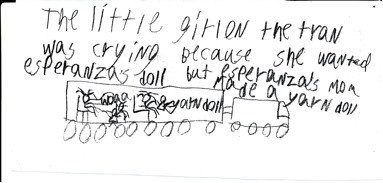 The little girl on the tran
was crying because she wanted
esperanzas doll but esperanza's mom
made a yarn doll
waaa yarn doll